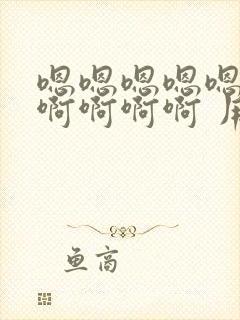 嗯嗯嗯嗯嗯
啊啊啊啊
鱼高